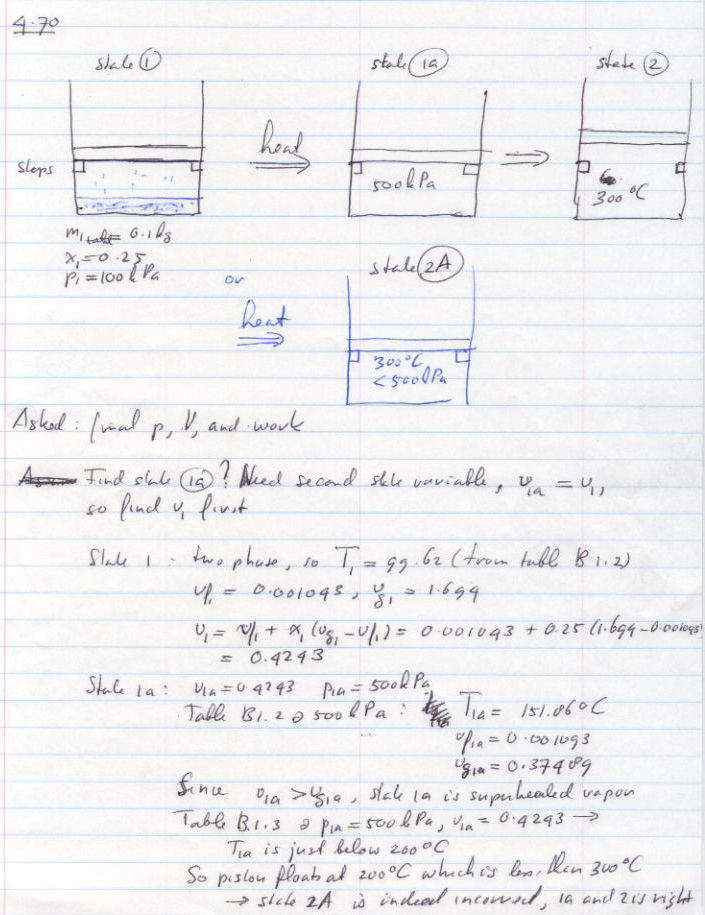 4.70
state 1 state 1a state 2
heat
stops
500 kPa
300 °C
m1 total = 0.1 kg
x1 = 0.25
p1 = 100 kPa
state 2A
or
heat
300°C
< 500 kPa
Asked : final p, V, and work
Find state 1a ? Need second state variable, v1a = v1,
so find v1 first
State 1 : two phase, so T1 = 99.62 (from table B 1.2)
vf1 = 0.001043, vg1 = 1.694
v1 = vf1 + x1 (vg1 - vf1) = 0.001043 + 0.25 (1.694 - 0.001043)
= 0.4243
State 1a : v1a = 0.4243 p1a = 500 kPa
Table B1.2 @ 500 kPa : T1a = 151.86 °C
vf1a = 0.001093
vg1a = 0.37489
Since v1a > vg1a, state 1a is superheated vapor
Table B.1.3 @ p1a = 500 kPa, v1a = 0.4243 →
T1a is just below 200°C
So piston floats at 200°C which is less than 300°C
→ state 2A is indeed incorrect, 1a and 2 is right